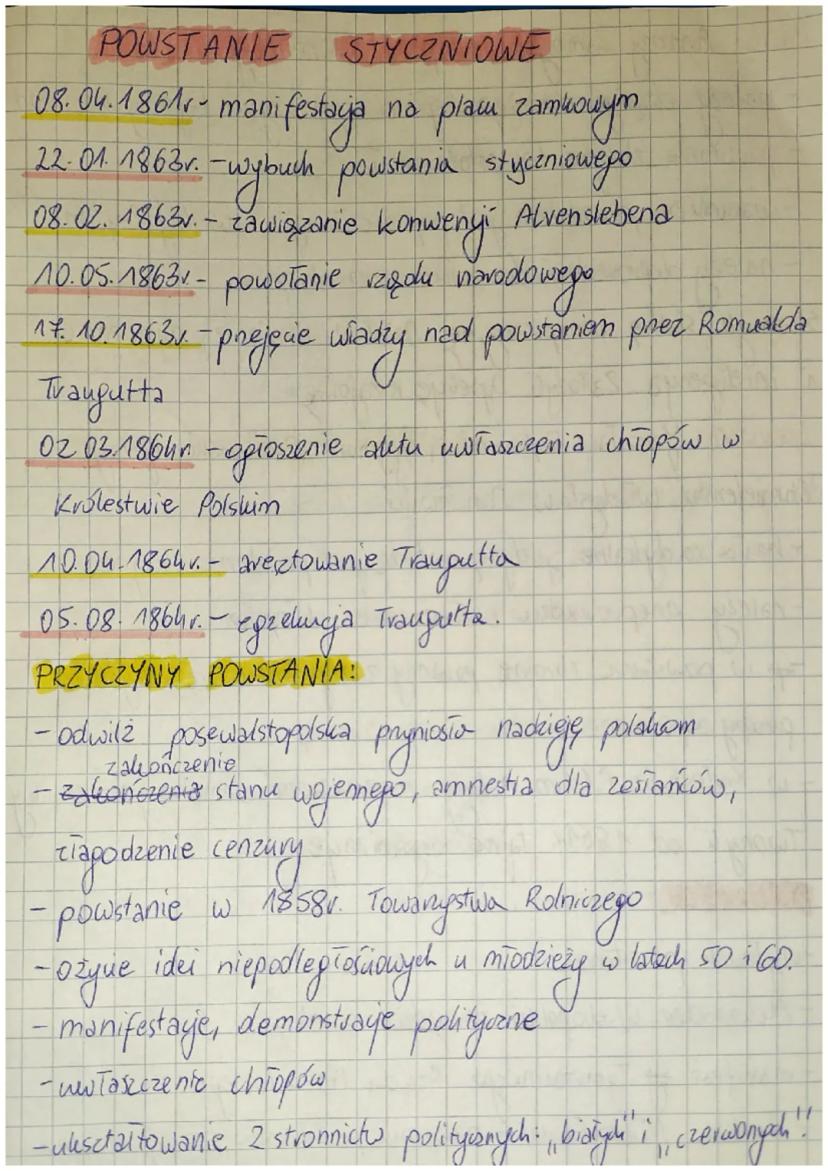 POWSTANIE STYCZNIOWE
08.04.1861r - manifestacja na placu zamkowym
22.01.1863r. - wybuch powstania styczniowego
08.02.1863r. - zawiązanie konwencji Alvenslebena
10.05.1863r - powołanie rządu narodowego
17.10.1863r. - przejęcie władzy nad powstaniem przez Romualda
Traugutta
02.03.1864r. - ogłoszenie aktu uwłaszczenia chłopów w
Królestwie Polskim
10.04.1864r. - aresztowanie Traugutta
05.08.1864r. - egzekucja Traugutta.
PRZYCZYNY POWSTANIA:
- odwilż posewalstopolska przyniosła nadzieję polakom
zakończenie
- zakończenia stanu wojennego, amnestia dla zesłańców,
złagodzenie cenzury
- powstanie w 1858r. Towarzystwa Rolniczego
- ożycie idei niepodległościowych u młodzieży w latach 50 i 60.
- manifestacje, demonstracje polityczne
- uwłaszczenie chłopów
- ukształtowanie 2 stronnictw politycznych: „białych" i „czerwonych".